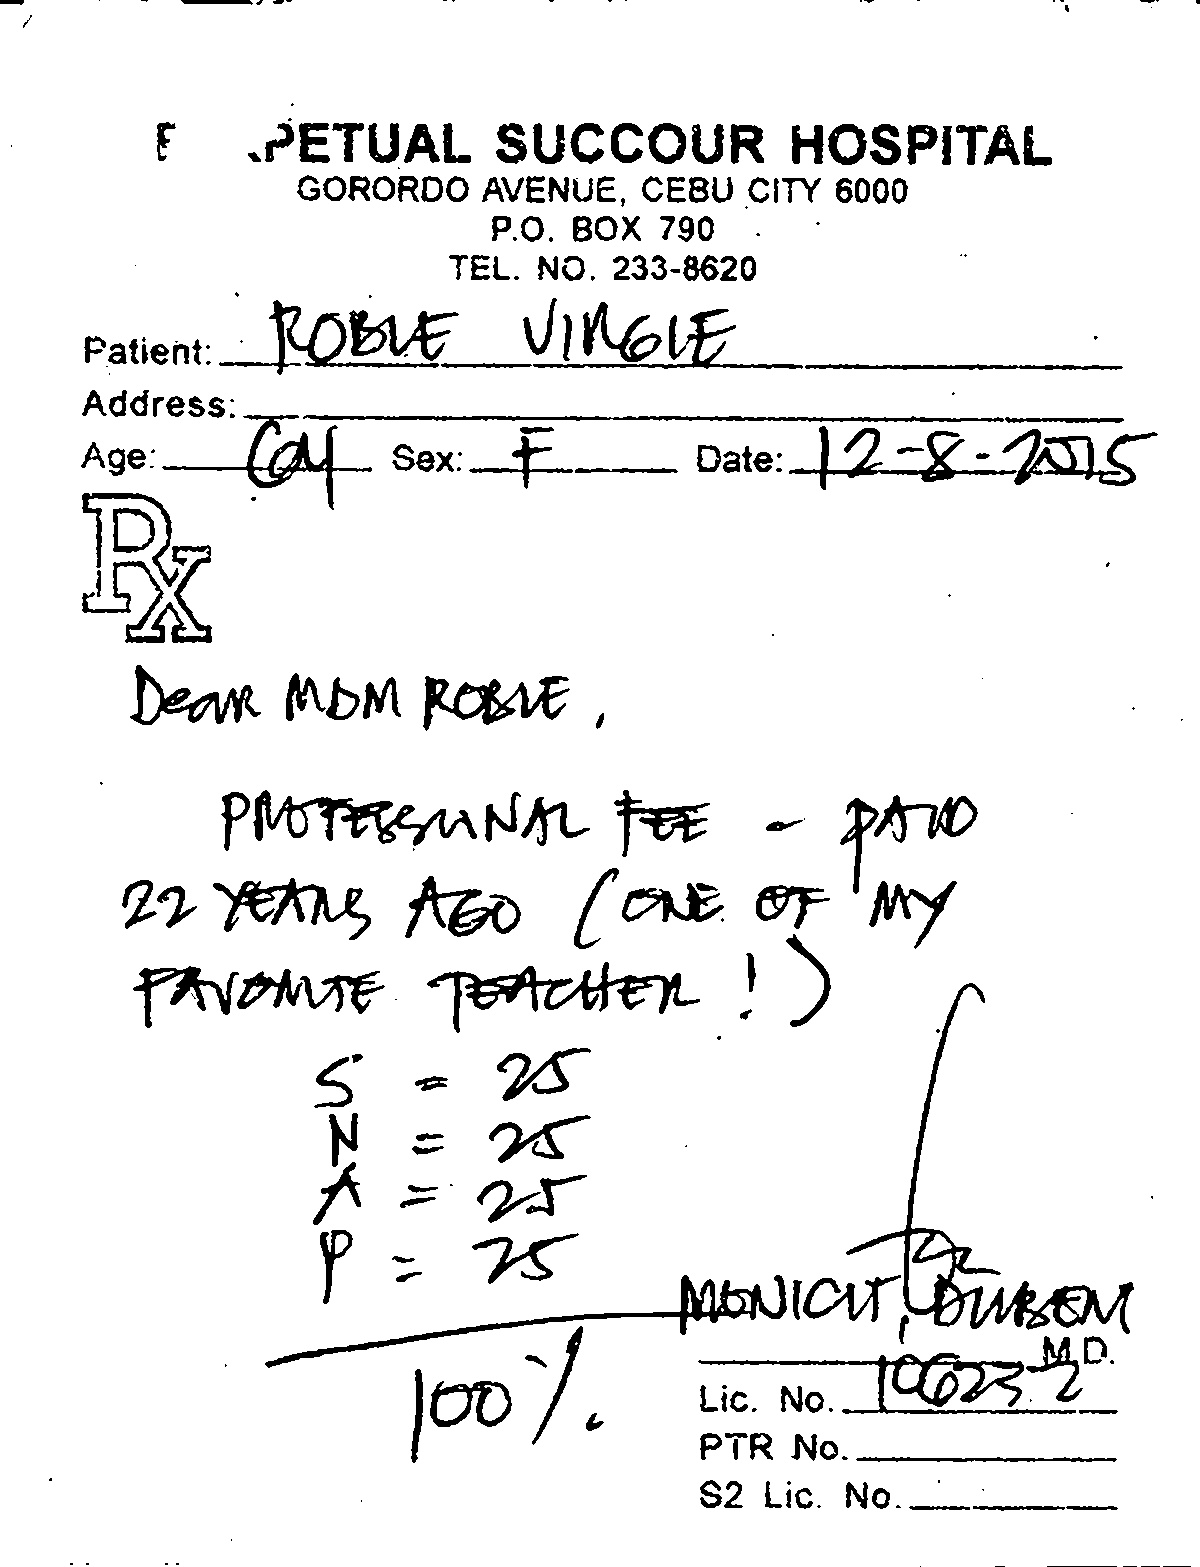 PETUAL SUCCOUR HOSPITAL
GORORDO AVENUE, CEBU CITY 6000
P.O. BOX 790
TEL. NO. 233-8620
Patient: ROBLE VIRGIE
Address:
Age: 60y Sex: F Date: 12-8-2015
Rx
Dear MDM ROBLE,
PROFESSIONAL FEE - PAID
22 YEARS AGO (ONE OF MY
FAVORITE TEACHER!)
S = 25
N = 25
A = 25
P = 25
100%.
M.D.
Lic. No. 106232
PTR No.
S2 Lic. No.